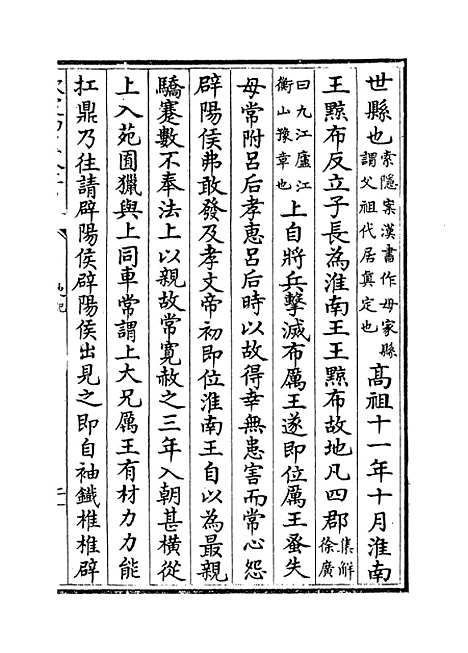 世縣也索隱案漢書作母家縣謂父祖代居真定也高祖十一年十月淮南
王黥布反立子長為淮南王王黥布故地凡四郡集解徐廣
曰九江廬江衡山豫章也上自將兵擊滅布厲王遂即位厲王蚤失
母常附呂后孝惠呂后時以故得幸無患害而常心怨
辟陽侯弗敢發及孝文帝初即位淮南王自以為最親
驕蹇數不奉法上以親故常寬赦之三年入朝甚橫從
上入苑囿獵與上同車常謂上大兄厲王有材力力能
扛鼎乃往請辟陽侯辟陽侯出見之即自袖鐵椎椎辟
史記